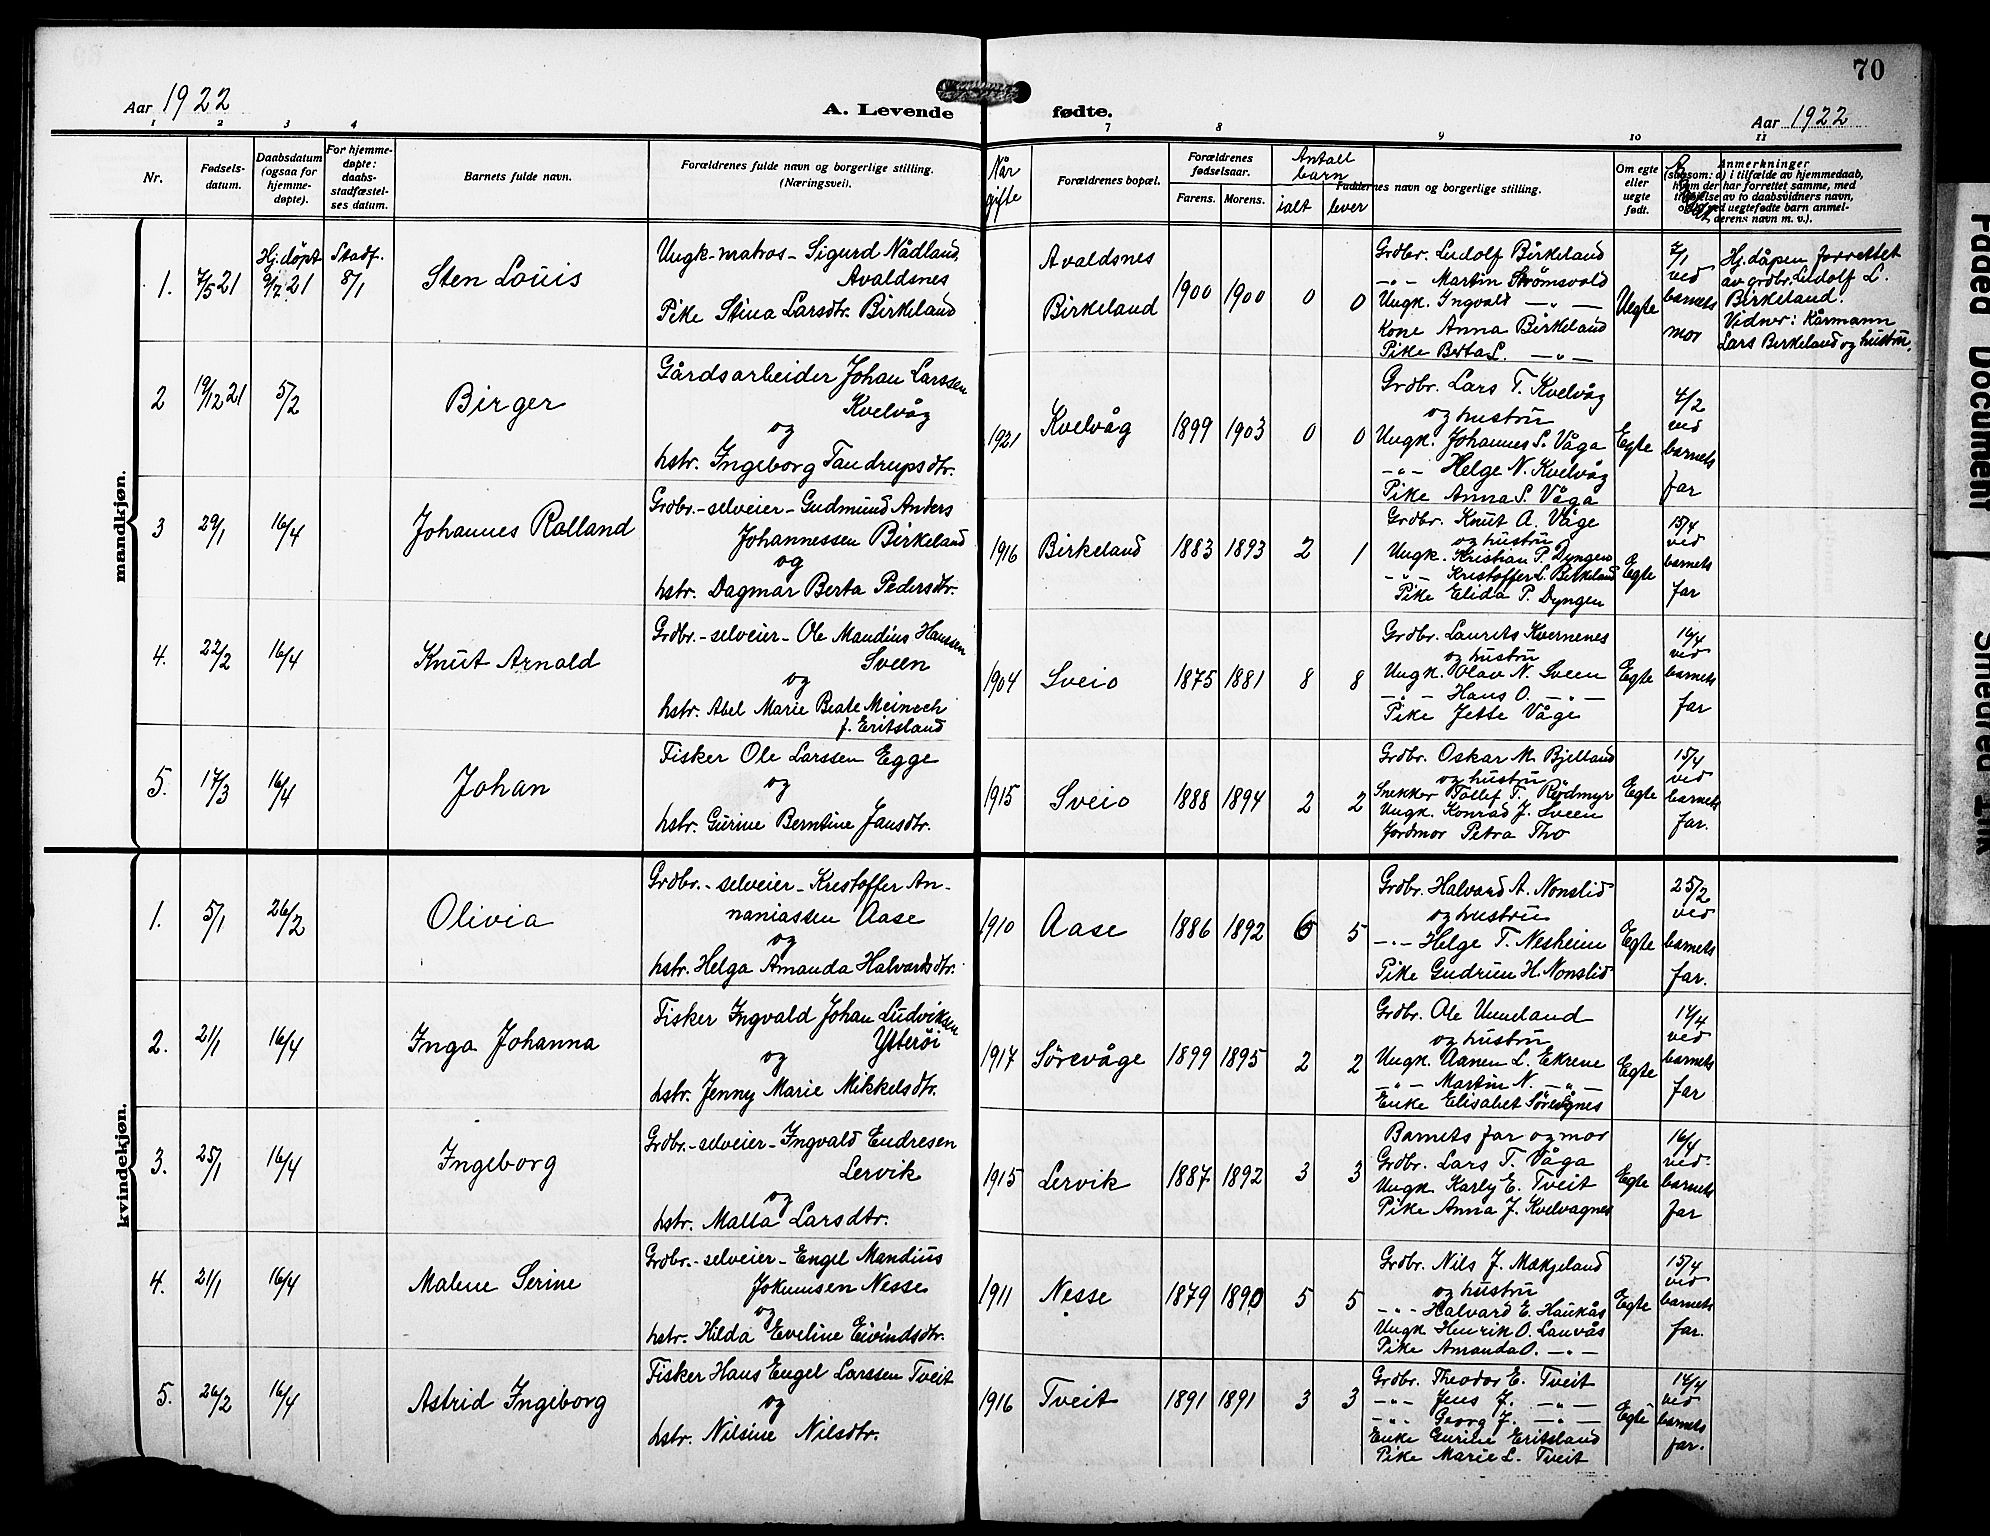 70
Aar 1922
A. Levende fødte.
Aar 1922
1 2 3 4 7 8 9 10 11
Nr.
Fødsels-
datum.
Daabsdatum
(ogsaa for
hjemme-
døpte).
For hjemme-
døpte:
daabs-
stadfæstel-
ses datum.
Barnets fulde navn.
Forældrenes fulde navn og borgerlige stilling.
(Næringsvei).
Når
gifte
Forældrenes bopæl.
Forældrenes
fødselsaar.
Farens. Morens.
Antall
barn
ialt lever
Faddernes navn og borgerlige stilling.
Om egte
eller
uegte
født.
Anmerkninger
(saasom: a) i tilfælde av hjemmedaab,
hvem der har forrettet samme, med
tilføielse av to daabsvidners navn,
b) ved uegtefødte barn anmel-
derens navn m. v.).
mandkjøn.
1. 7/5 21
Hj. døpt
9/7 21
Stadf.
8/1
Sten Louis
Ungk-matros- Sigurd Nådland,
Avaldsnes
Pike Stina Larsdtr. Birkeland
Avaldsnes
Birkeland
1900 1900 0 0
Grdbr. Ludolf Birkeland
-"- Martin Strømsvold
Ungk. Ingvald -"-
Kone Anna Birkeland
Pike Berta L. -"-
Uegte
7/1
ved
barnets
mor
Hj. dåpen forrettet
av grdbr. Ludolf L.
Birkeland.
Vidner: Kårmann
Lars Birkeland og hustru.
2 19/12 21 5/2
Birger
Gårdsarbeider Johan Larssen
Kvelvåg
og
hstr. Ingeborg Tandrupsdtr.
1921 Kvelvåg 1899 1903 0 0
Grdbr. Lars T. Kvelvåg
og hustru
Ungk. Johannes S. Våga
-"- Helge N. Kvelvåg
Pike Anna S. Våga
Egte
4/2
ved
barnets
far
3 29/1 16/4
Johannes Rolland
Grdbr.-selveier- Gudmund Anders
Johannessen Birkeland
og
hstr. Dagmar Berta Pedersdtr.
1916 Birkeland 1883 1893 2 1
Grdbr. Knut A. Våge
og hustru
Ungk. Kristian P. Dyngen
-"- Kristoffer L. Birkeland
Pike Elida P. Dyngen
Egte
15/4
ved
barnets
far
4. 22/2 16/4
Knut Arnold
Grdbr.-selveier- Ole Mandius Hanssen
Sveen
og
hstr. Abel Marie Beate Meinech
f. Eritsland
1904 Sveio 1875 1881 8 8
Grdbr. Laurits Kvernenes
og hustru
Ungk. Olav N. Sveen
-"- Hans O. -"-
Pike Jette Våge
Egte
16/4
ved
barnets
far
5. 17/3 16/4
Johan
Fisker Ole Larssen Egge
og
hstr. Gurine Berntine Jansdtr.
1915 Sveio 1888 1894 2 2
Grdbr. Oskar M. Bjelland
og hustru
Snekker Tollef T. Rødmyr
Ungk. Konrad J. Sveen
Jordmor Petra Tho
Egte
15/4
ved
barnets
far.
kvindekjøn.
1. 5/1 26/2
Olivia
Grdbr.-selveier- Kristoffer An-
naniassen Aase
og
hstr. Helga Amanda Halvardsdtr.
1910 Aase 1886 1892 6 5
Grdbr. Halvard A. Nonslid
og hustru
-"- Helge T. Nesheim
Pike Gudrun H. Nonslid
Egte
25/2
ved
barnets
far.
2. 21/1 16/4
Inga Johanna
Fisker Ingvald Johan Ludviksen
Ytterøi
og
hstr. Jenny Marie Mikkelsdtr.
1917 Sørevåge 1899 1895 2 2
Grdbr. Ole Unneland
og hustru
Ungk. Aanen L. Ekrene
-"- Martin N. -"-
Enke Elisabet Sørevågnes
Egte
14/4
ved
barnets
far
3. 25/1 16/4
Ingeborg
Grdbr.-selveier- Ingvald Endresen
Lervik
og
hstr. Malla Larsdtr.
1915 Lervik 1887 1892 3 3
Barnets far og mor
Grdbr. Lars T. Våga
Ungk. Karly E. Tveit
Pike Anna J. Kvelvagnes
Egte
16/4
ved
barnets
far
4. 21/1 16/4
Malene Serine
Grdbr.-selveier- Engel Mandius
Jokumsen Nesse
og
hstr. Hilda Eveline Eivindsdtr.
1911 Nesse 1879 1890 5 5
Grdbr. Nils J. Mækjeland
og hustru
-"- Halvard E. Haukås
Ungk Henrik O. Lauvås
Pike Amanda O. -"-
Egte
15/4
ved
barnets
far.
5. 26/2 16/4
Astrid Ingeborg
Fisker Hans Engel Larssen Tveit
og
hstr. Nilsine Nilsdtr.
1916 Tveit 1891 1891 3 3
Grdbr. Theodor E. Tveit
-"- Jens J. -"-
-"- Georg J. -"-
Enke Gurine Eritsland
Pike Marie L. Tveit
Egte
14/4
ved
barnets
far.
Faded Document
Smeared Ink